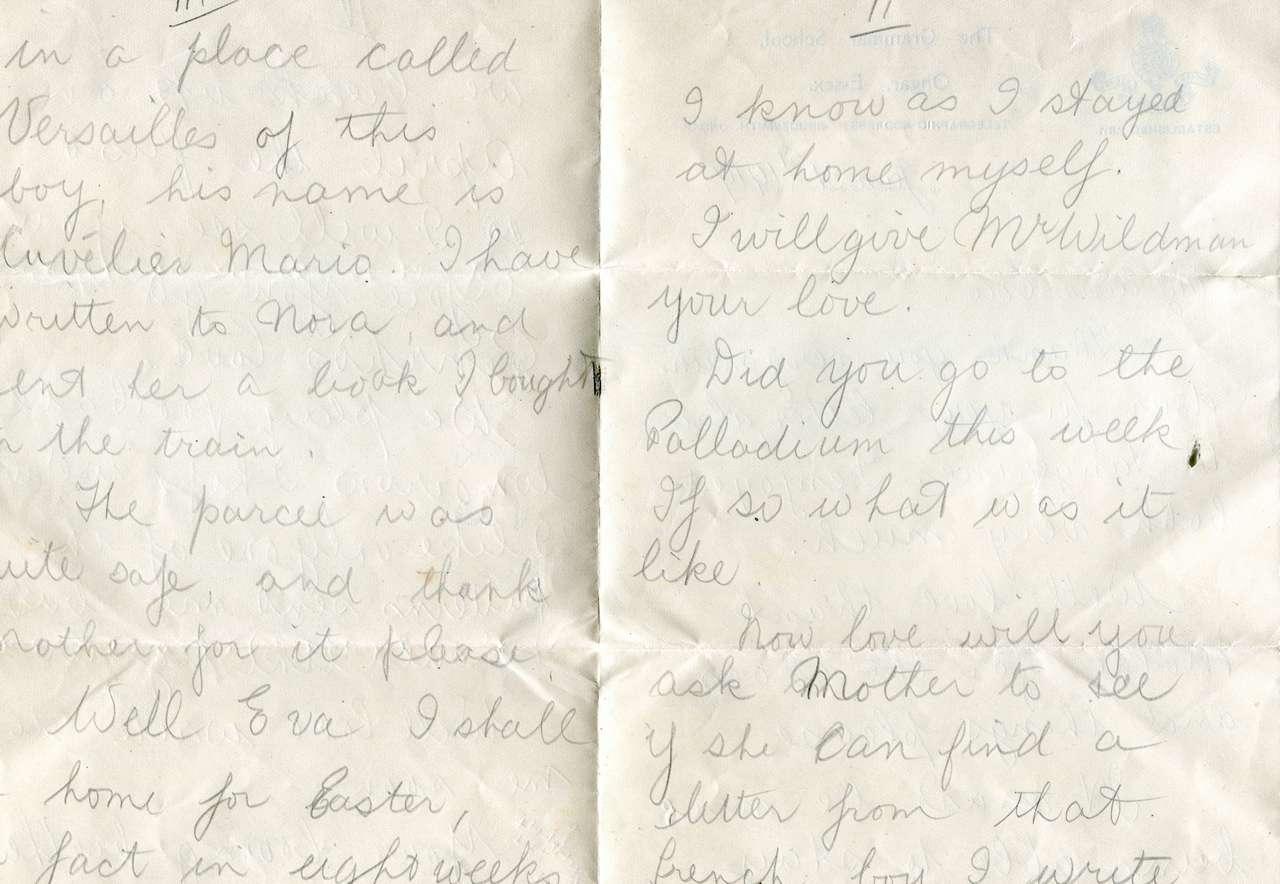 II
I know as I stayed
at home myself.
I will give Mr Wildman
your love.
Did you go to the
Palladium this week
If so what was it
like
Now love will you
ask Mother to see
if she can find a
letter from that
French boy I write
III
in a place called
Versailles of this
boy, his name is
Cuvélier Mario. I have
written to Nora, and
ent her a book I bought
n the train.
The parcel was
uite safe, and thank
mother for it please
Well Eva I shall
home for Easter,
fact in eight weeks